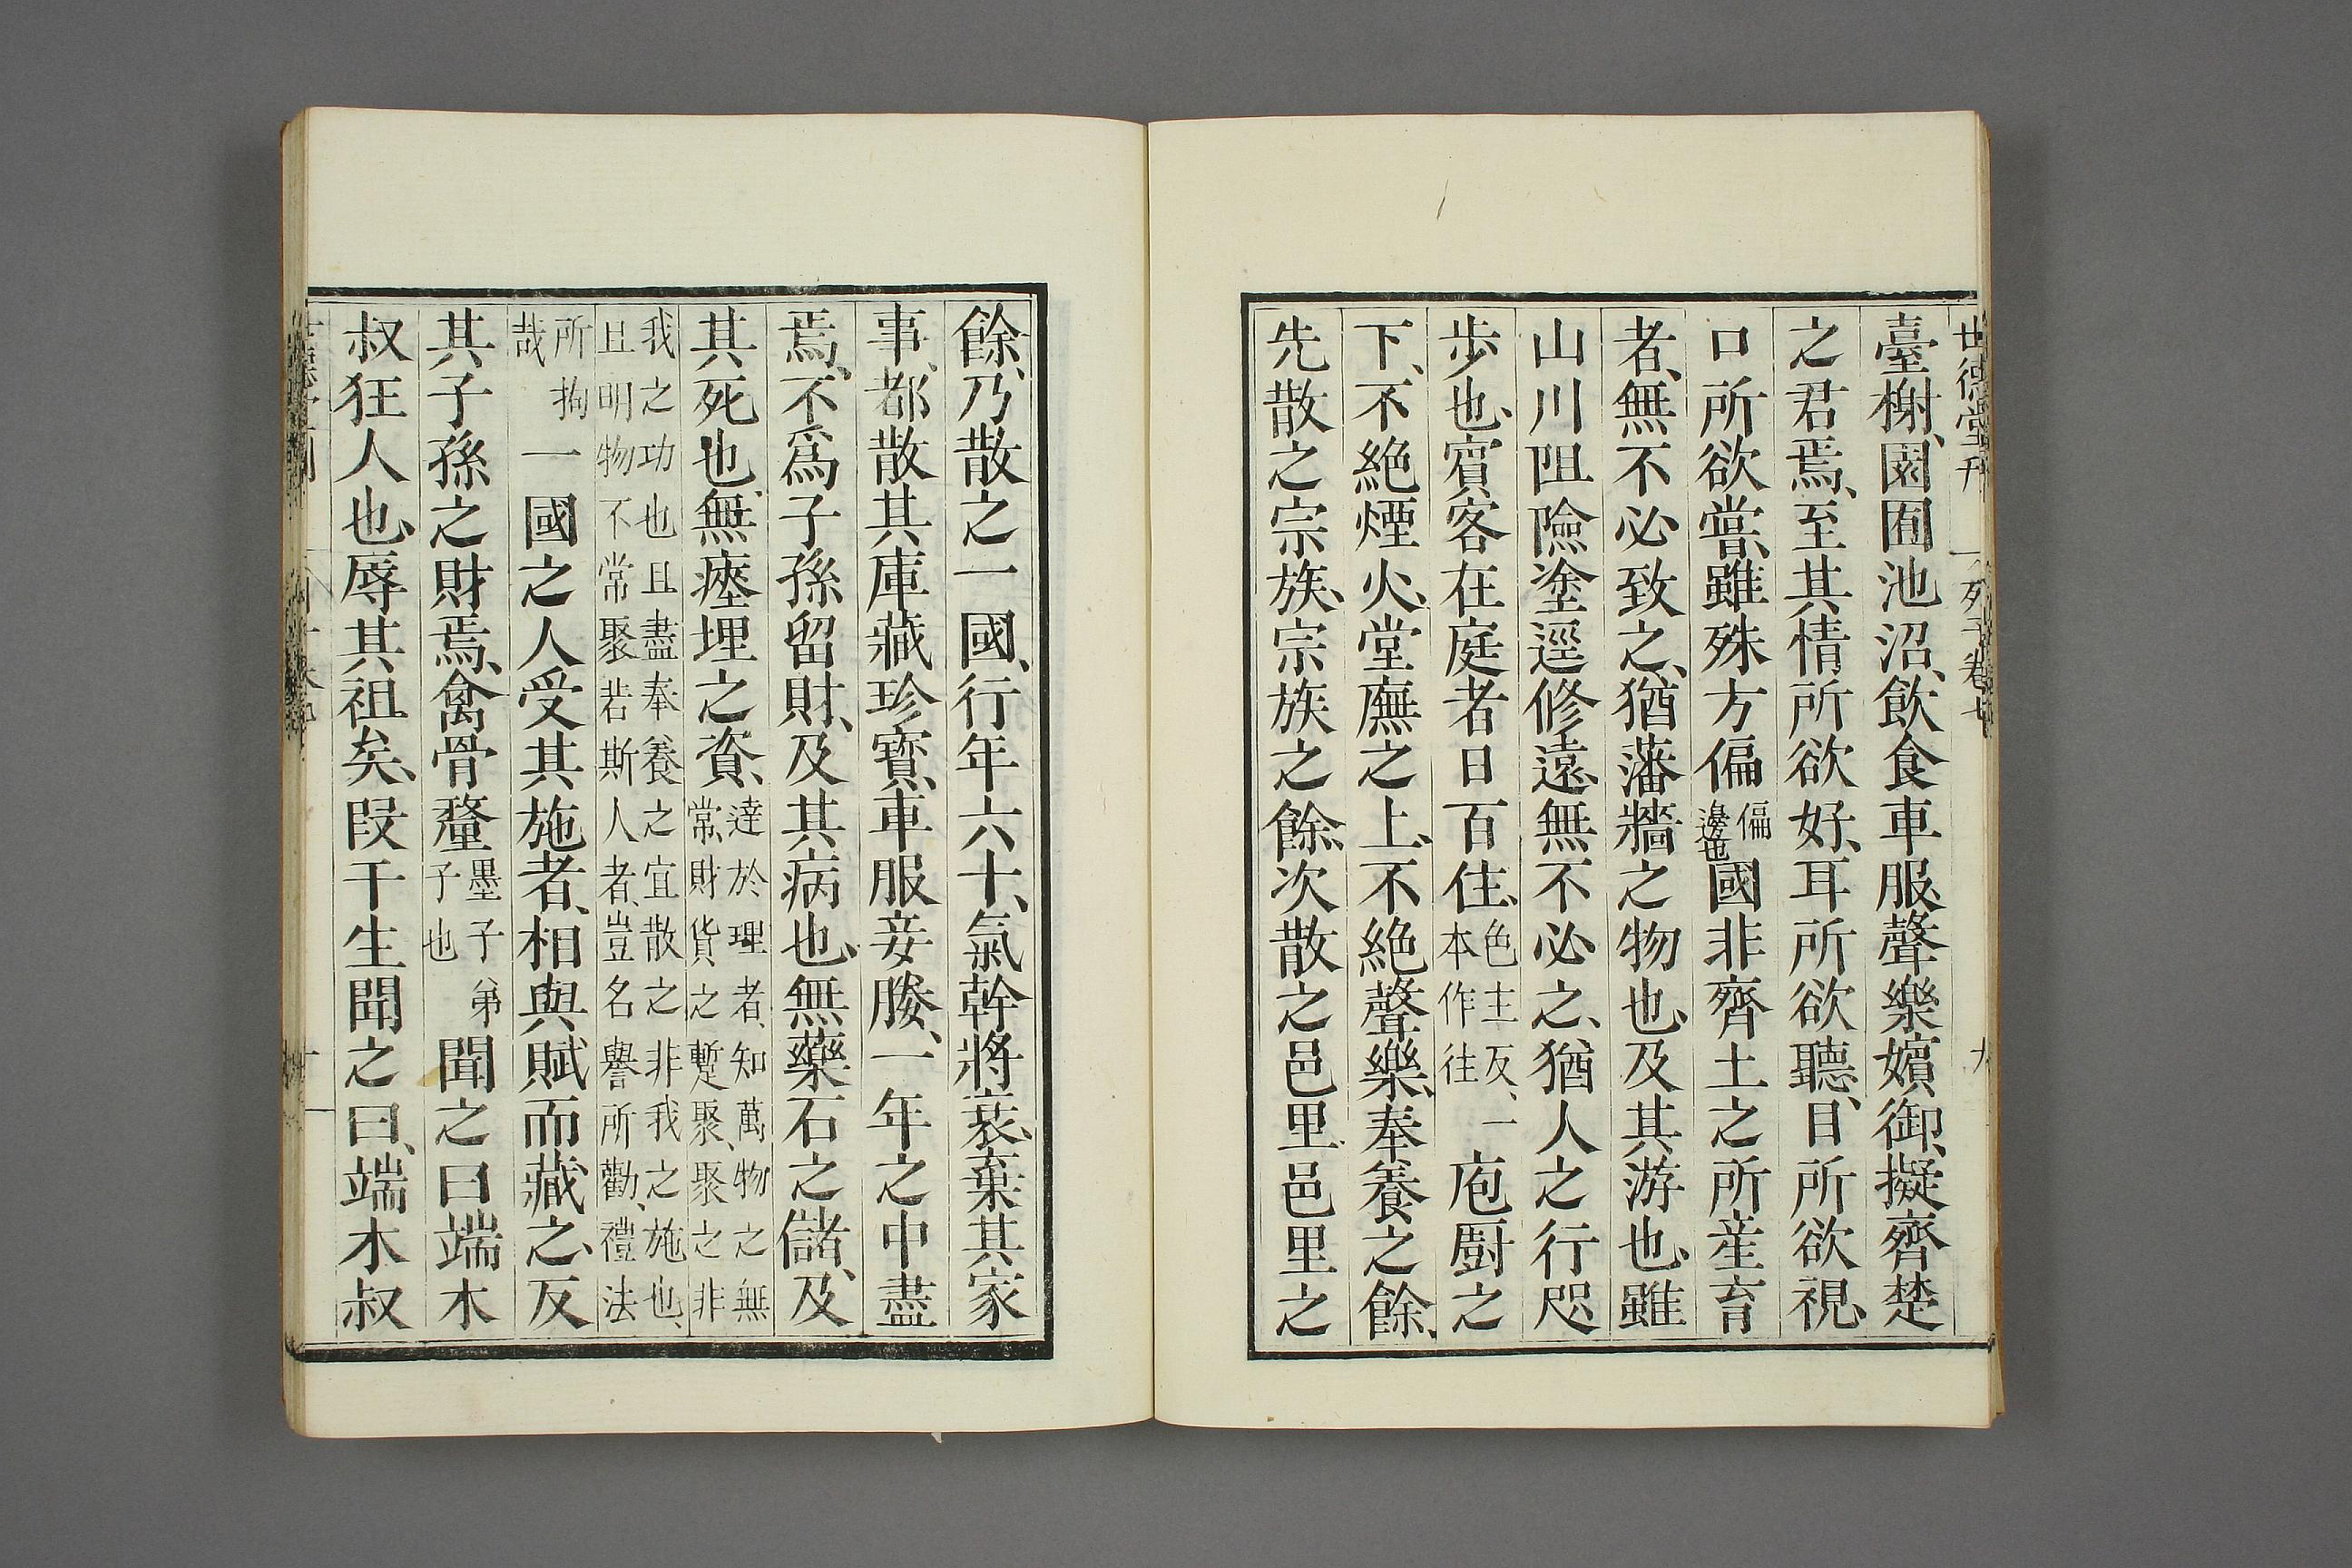 世德堂刊 列子卷七 九
臺榭、園囿池沼、飲食車服、聲樂嬪御、擬齊楚
之君焉、至其情所欲好、耳所欲聽、目所欲視、
口所欲嘗、雖殊方偏偏邊也國非齊土之所産育
者、無不必致之、猶藩牆之物也、及其游也、雖
山川阻險塗逕修遠、無不必之、猶人之行咫
步也、賓客在庭者日百住、色主反、一本作往庖厨之
下、不絶煙火、堂廡之上、不絶聲樂、奉養之餘、
先散之宗族、宗族之餘、次散之邑里、邑里之
餘、乃散之一國、行年六十、氣幹將衰、棄其家
事、都散其庫藏珍寶、車服妾媵、一年之中盡
焉、不爲子孫留財、及其病也、無藥石之儲、及
其死也、無瘞埋之資、達於理者、知萬物之無常、財貨之蹔聚、聚之非
我之功也且盡奉養之宜散之非我之施也、且明物不常聚若斯人者、豈名譽所勸、禮法
所拘哉一國之人受其施者、相與賦而藏之、反
其子孫之財焉、禽骨釐墨子弟子也聞之曰端木
叔狂人也、辱其祖矣、段干生聞之曰、端木叔